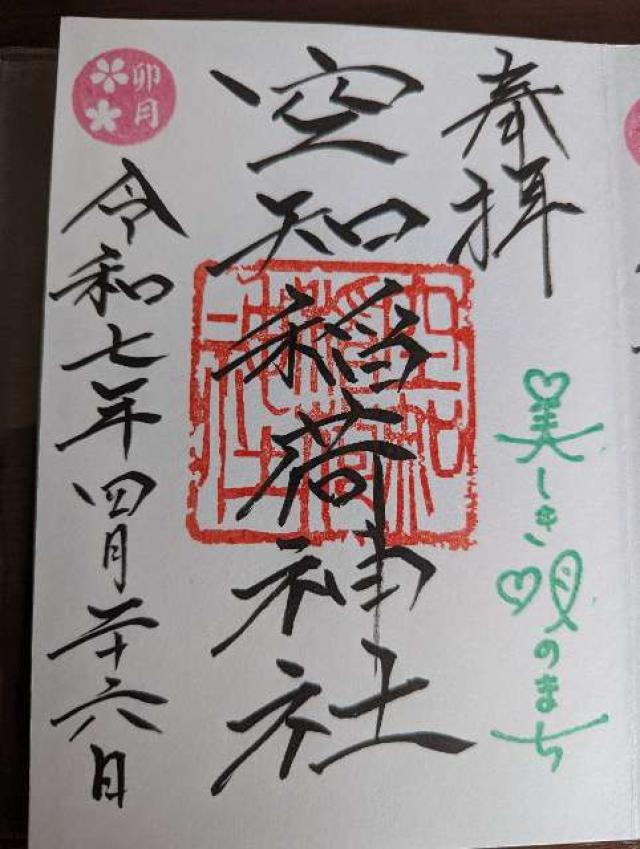 奉拝
美しき唄のまち
空知稲荷神社
空知
稲荷
神社
卯月
令和七年四月二十六日